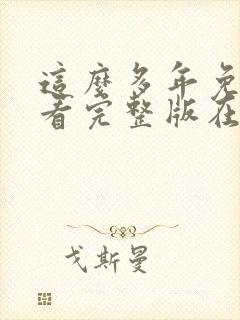 這麼多年免
看完整版在
戈斯曼